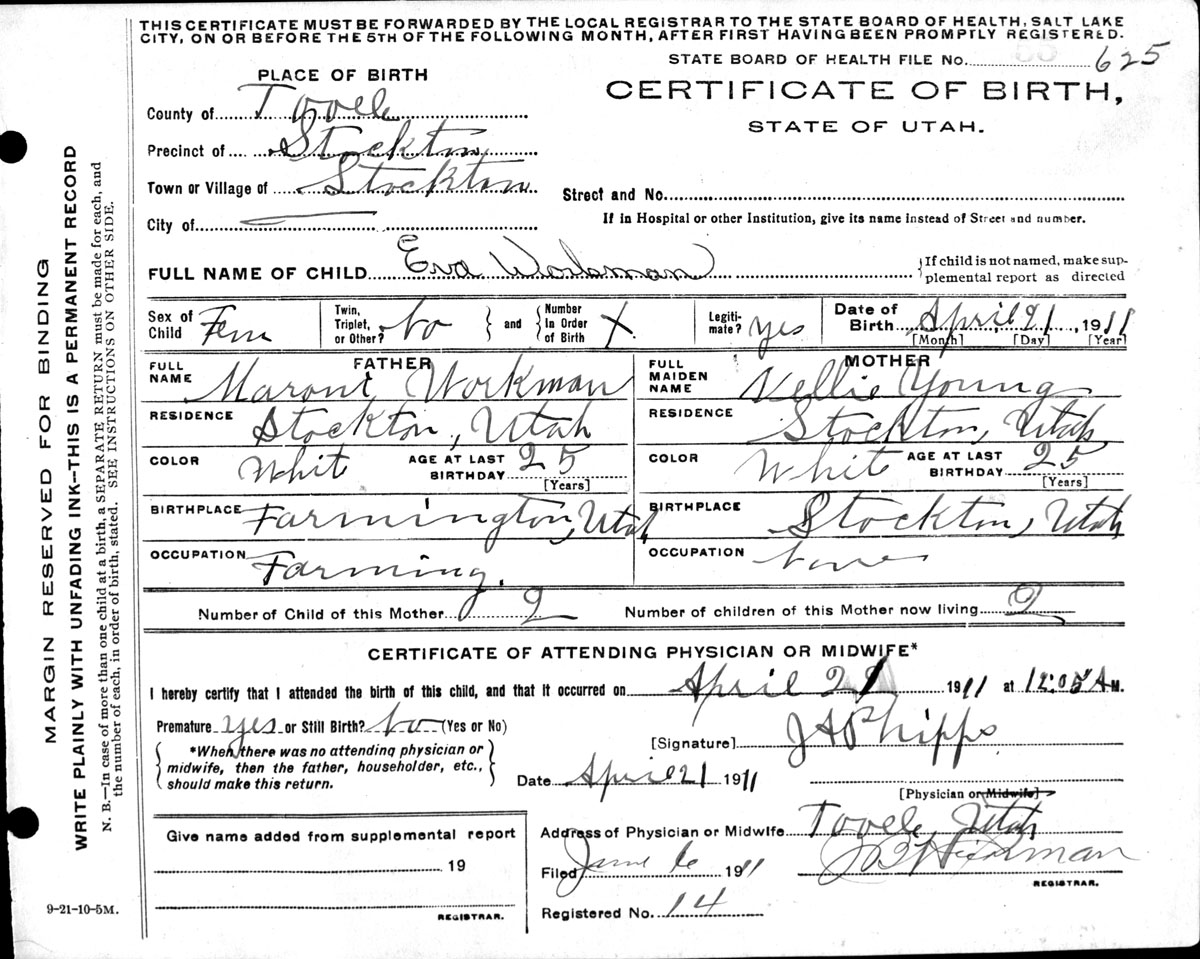 THIS CERTIFICATE MUST BE FORWARDED BY THE LOCAL REGISTRAR TO THE STATE BOARD OF HEALTH, SALT LAKE
CITY, ON OR BEFORE THE 5TH OF THE FOLLOWING MONTH, AFTER FIRST HAVING BEEN PROMPTLY REGISTERED.
STATE BOARD OF HEALTH FILE No. 625
PLACE OF BIRTH
CERTIFICATE OF BIRTH,
STATE OF UTAH.
County of Tooele
Precinct of Stockton
Town or Village of Stockton
Street and No.
City of
If in Hospital or other Institution, give its name instead of Street and number.
FULL NAME OF CHILD Eva Workman
If child is not named, make sup-
plemental report as directed
Sex of Child Fem
Twin, Triplet, or Other? No
and
Number In Order of Birth X
Legiti-mate? yes
Date of Birth April 21, 1911
[Month] [Day] [Year]
FATHER
MOTHER
FULL NAME Maroni Workman
FULL MAIDEN NAME Nellie Young
RESIDENCE Stockton, Utah
RESIDENCE Stockton, Utah
COLOR White AGE AT LAST BIRTHDAY 25 [Years]
COLOR White AGE AT LAST BIRTHDAY 25 [Years]
BIRTHPLACE Farmington, Utah
BIRTHPLACE Stockton, Utah
OCCUPATION Farming.
OCCUPATION None
Number of Child of this Mother 2
Number of children of this Mother now living 2
CERTIFICATE OF ATTENDING PHYSICIAN OR MIDWIFE*
I hereby certify that I attended the birth of this child, and that it occurred on April 21 1911 at 12:05 A M.
Premature yes or Still Birth? No (Yes or No)
[Signature] J A Phipps
*When there was no attending physician or
midwife, then the father, householder, etc.,
should make this return.
Date April 21 1911
[Physician or Midwife]
Give name added from supplemental report
19
REGISTRAR.
Address of Physician or Midwife Tooele, Utah
Filed June 6 1911
Hickman
REGISTRAR.
Registered No. 14
9-21-10-5M.
MARGIN RESERVED FOR BINDING
WRITE PLAINLY WITH UNFADING INK—THIS IS A PERMANENT RECORD
N. B.—In case of more than one child at a birth, a SEPARATE RETURN must be made for each, and
the number of each, in order of birth, stated. SEE INSTRUCTIONS ON OTHER SIDE.